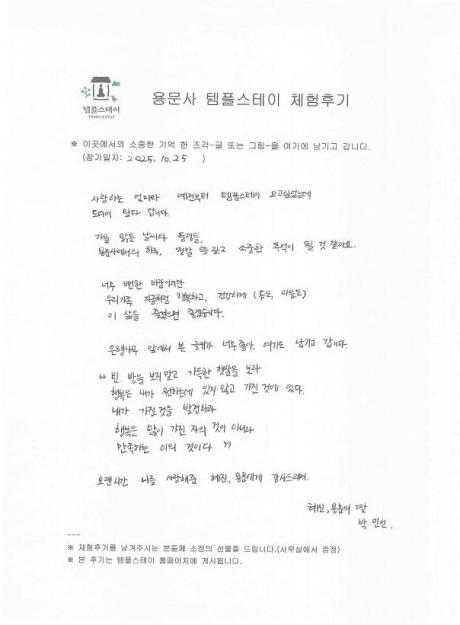 템플스테이
TEMPLESTAY
용문사 템플스테이 체험후기
※ 이곳에서의 소중한 기억 한 조각-글 또는 그림-을 여기에 남기고 갑니다.
(참가일자: 2025. 10. 25 )
사랑하는 엄마와 예전부터 템플스테이 오고싶었는데
드디어 왔다 갑니다.
가을 맑은 날씨와 풍경들,
용문사에서의 하루, 정말 뜻깊고 소중한 추억이 될 것 같아요.
너무 뻔한 바람이지만
우리가족 지금처럼 행복하고, 건강하게 (몸도, 마음도)
이 삶을 즐겼으면 좋겠습니다.
은행나무 앞에서 본 글귀가 너무 좋아, 여기도 남기고 갑니다.
“ 빈 방을 보지말고 가득한 햇살을 보라
행복은 내가 원하는데 있지 않고 가진 것에 있다.
내가 가진것을 발견하라
행복은 많이 가진 자의 것이 아니라
만족하는 이의 것이다 ”
오랜시간 나를 사랑해준 혜진, 용훈에게 감사드리며.
혜진, 용훈의 딸
박 민선.
---
※ 체험후기를 남겨주시는 분들께 소정의 선물을 드립니다.(사무실에서 증정)
※ 본 후기는 템플스테이 홈페이지에 게시됩니다.